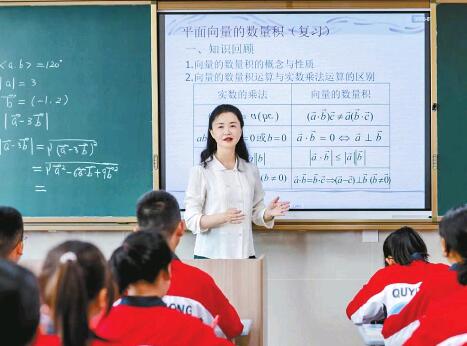 <a.b>=120°
|a|=3
b=(-1.2)
|a-3b|
|a-3b|=√(a-3b)²
=√a²-6ab+9b²
=
平面向量的数量积(复习)
一、知识回顾
1.向量的数量积的概念与性质
2.向量的数量积运算与实数乘法运算的区别
实数的乘法 向量的数量积
(a⃗·b⃗)c⃗≠a⃗(b⃗·c⃗)
或b=0 a⃗·b⃗=0⇔a⃗⊥b⃗
|b| |a⃗·b⃗|≤|a⃗||b⃗|
(b≠0) a⃗·b⃗=b⃗·c⃗⇒(a⃗-c⃗)⊥b⃗(b⃗≠0)
QUY
ONG